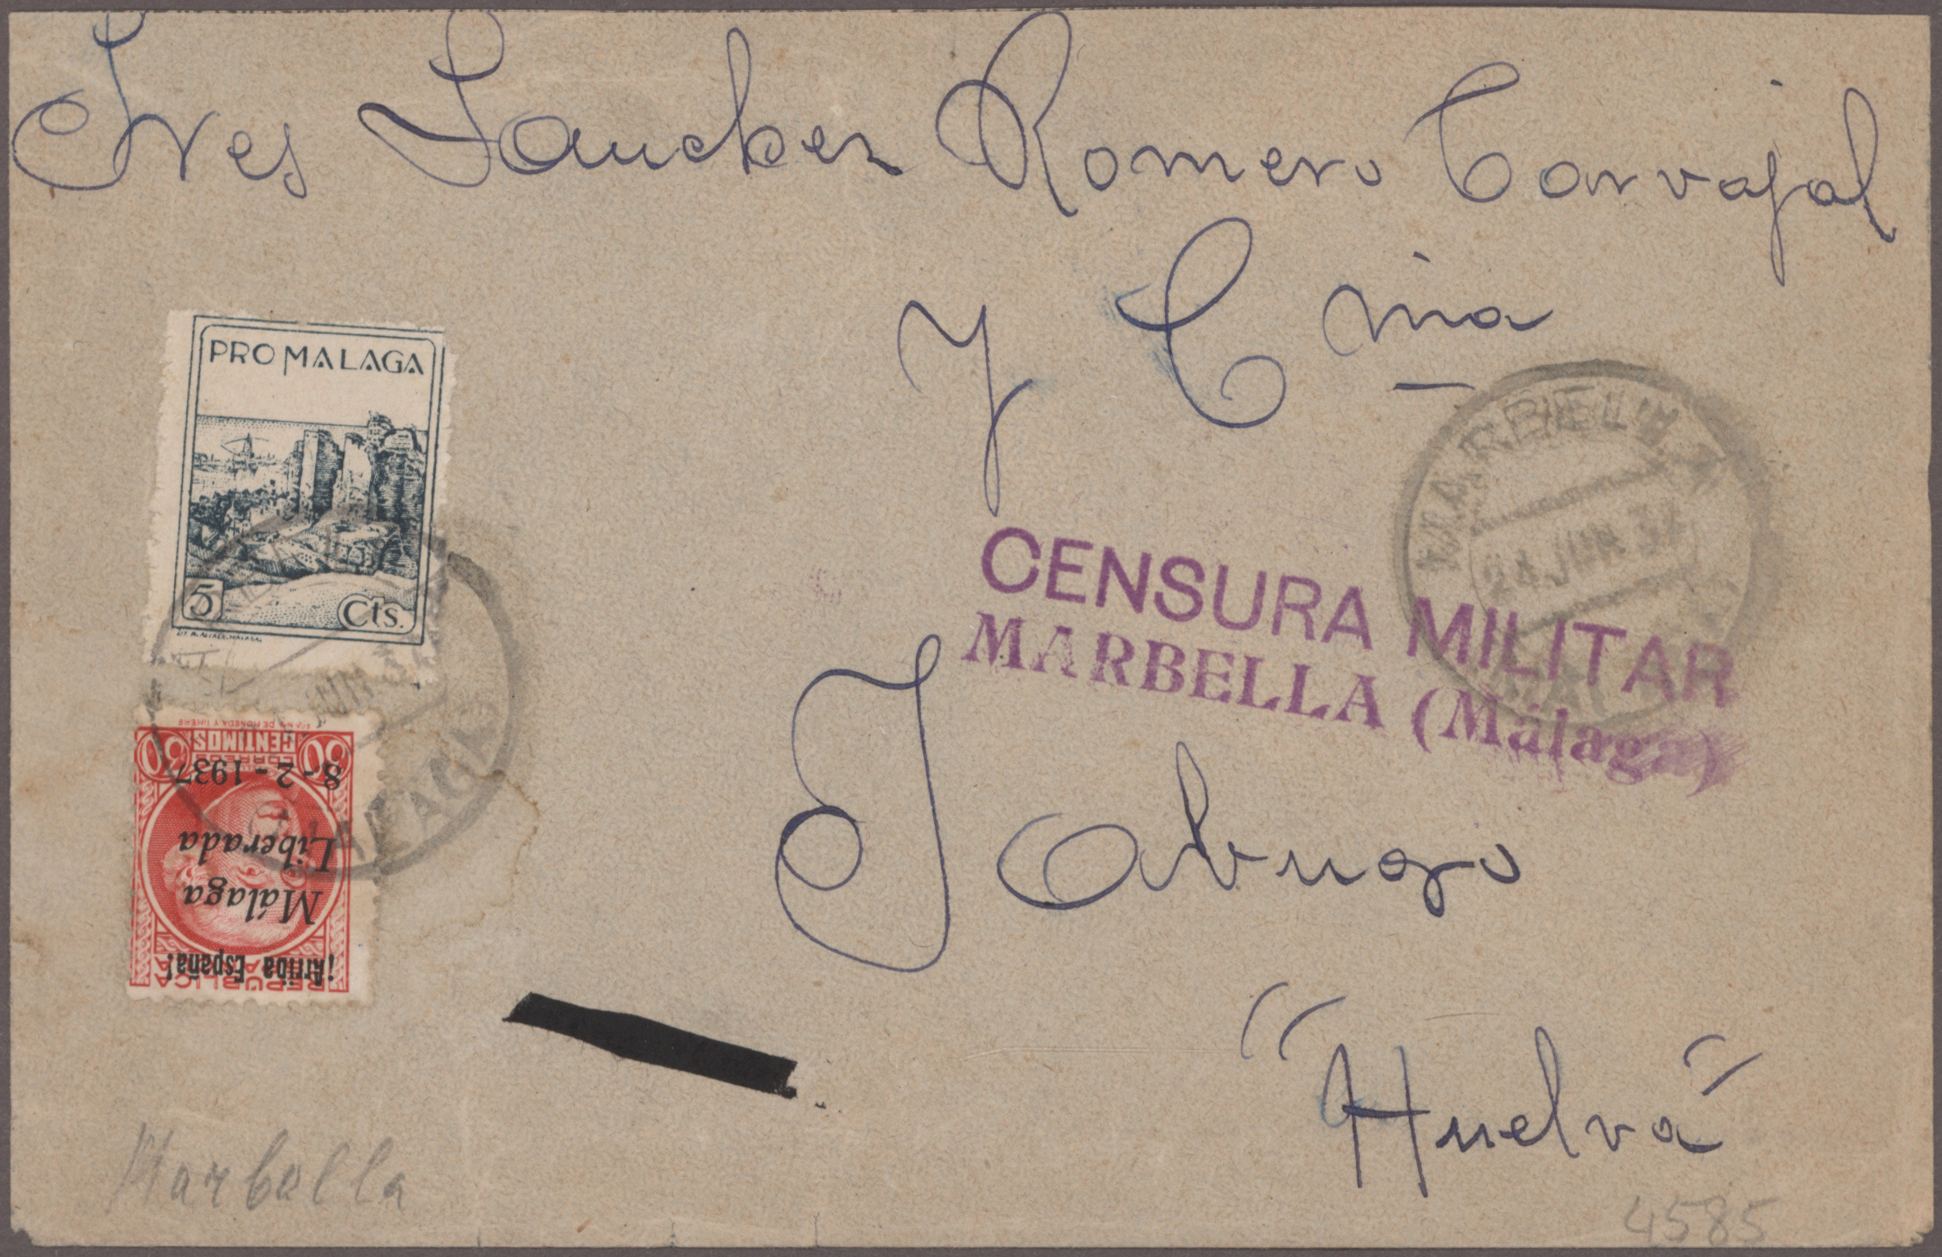 Sres Sanchez Romero Carvajal
y Cñia
PRO MALAGA
5 Cts.
MARBELLA
24 JUN 37
CENSURA MILITAR
MARBELLA (Málaga)
JUN 37
MALAGA
¡Arriba España!
Málaga
Liberada
8-2-1937
REPUBLICA
CORREOS
30 CENTIMOS 30
Jabugo
"Huelva"
Marbella
4585